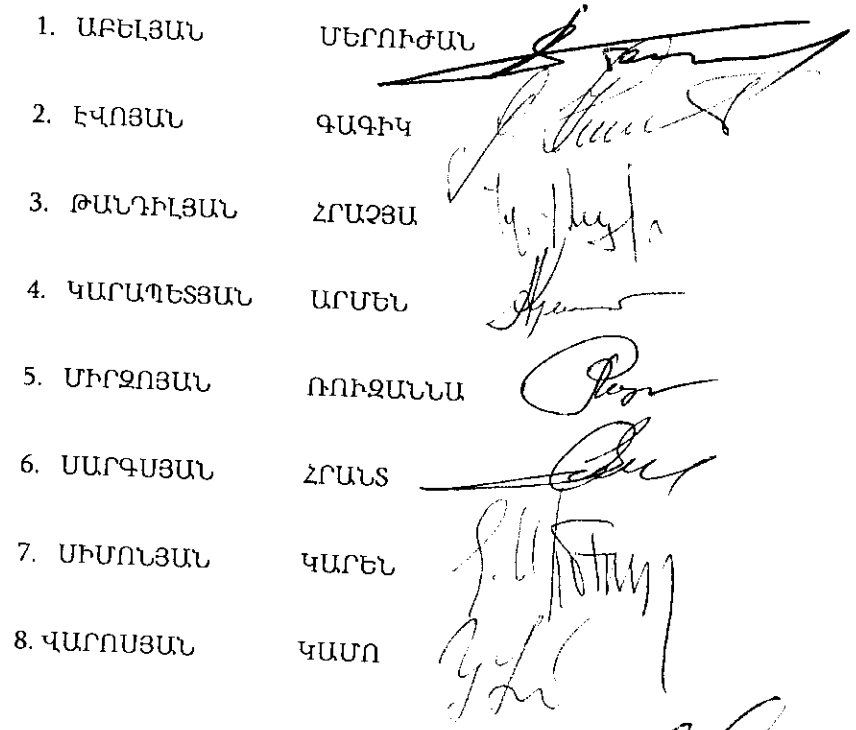 1. ԱԲԵԼՅԱՆ ՄԵՐՈՒԺԱՆ
2. ԷՎՈՅԱՆ ԳԱԳԻԿ
3. ԹԱՆԴԻԼՅԱՆ ՀՐԱՉՅԱ
4. ԿԱՐԱՊԵՏՅԱՆ ԱՐՄԵՆ
5. ՄԻՐԶՈՅԱՆ ՌՈՒԶԱՆՆԱ
6. ՍԱՐԳՍՅԱՆ ՀՐԱՆՏ
7. ՍԻՄՈՆՅԱՆ ԿԱՐԵՆ
8. ՎԱՐՈՍՅԱՆ ԿԱՄՈ